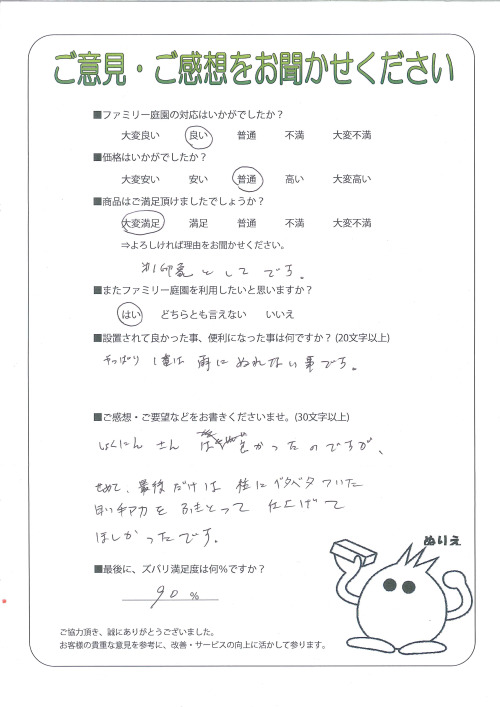 ご意見・ご感想をお聞かせください
■ファミリー庭園の対応はいかがでしたか？
大変良い 良い 普通 不満 大変不満
■価格はいかがでしたか？
大変安い 安い 普通 高い 大変高い
■商品はご満足頂けましたでしょうか？
大変満足 満足 普通 不満 大変不満
⇒よろしければ理由をお聞かせください。
印象としてです。
■またファミリー庭園を利用したいと思いますか？
はい どちらとも言えない いいえ
■設置されて良かった事、便利になった事は何ですか？(20文字以上)
やっぱり 1番は 雨に ぬれない事です。
■ご感想・ご要望などをお書きくださいませ。(30文字以上)
しょくにん さん は 良かったのですが、
せめて、最後だけは 柱に ベタベタ ついた
をふきとって 仕上げて
ほしかったです。
ぬりえ
■最後に、ズバリ満足度は何%ですか？
90 %
ご協力頂き、誠にありがとうございました。
お客様の貴重な意見を参考に、改善・サービスの向上に活かして参ります。